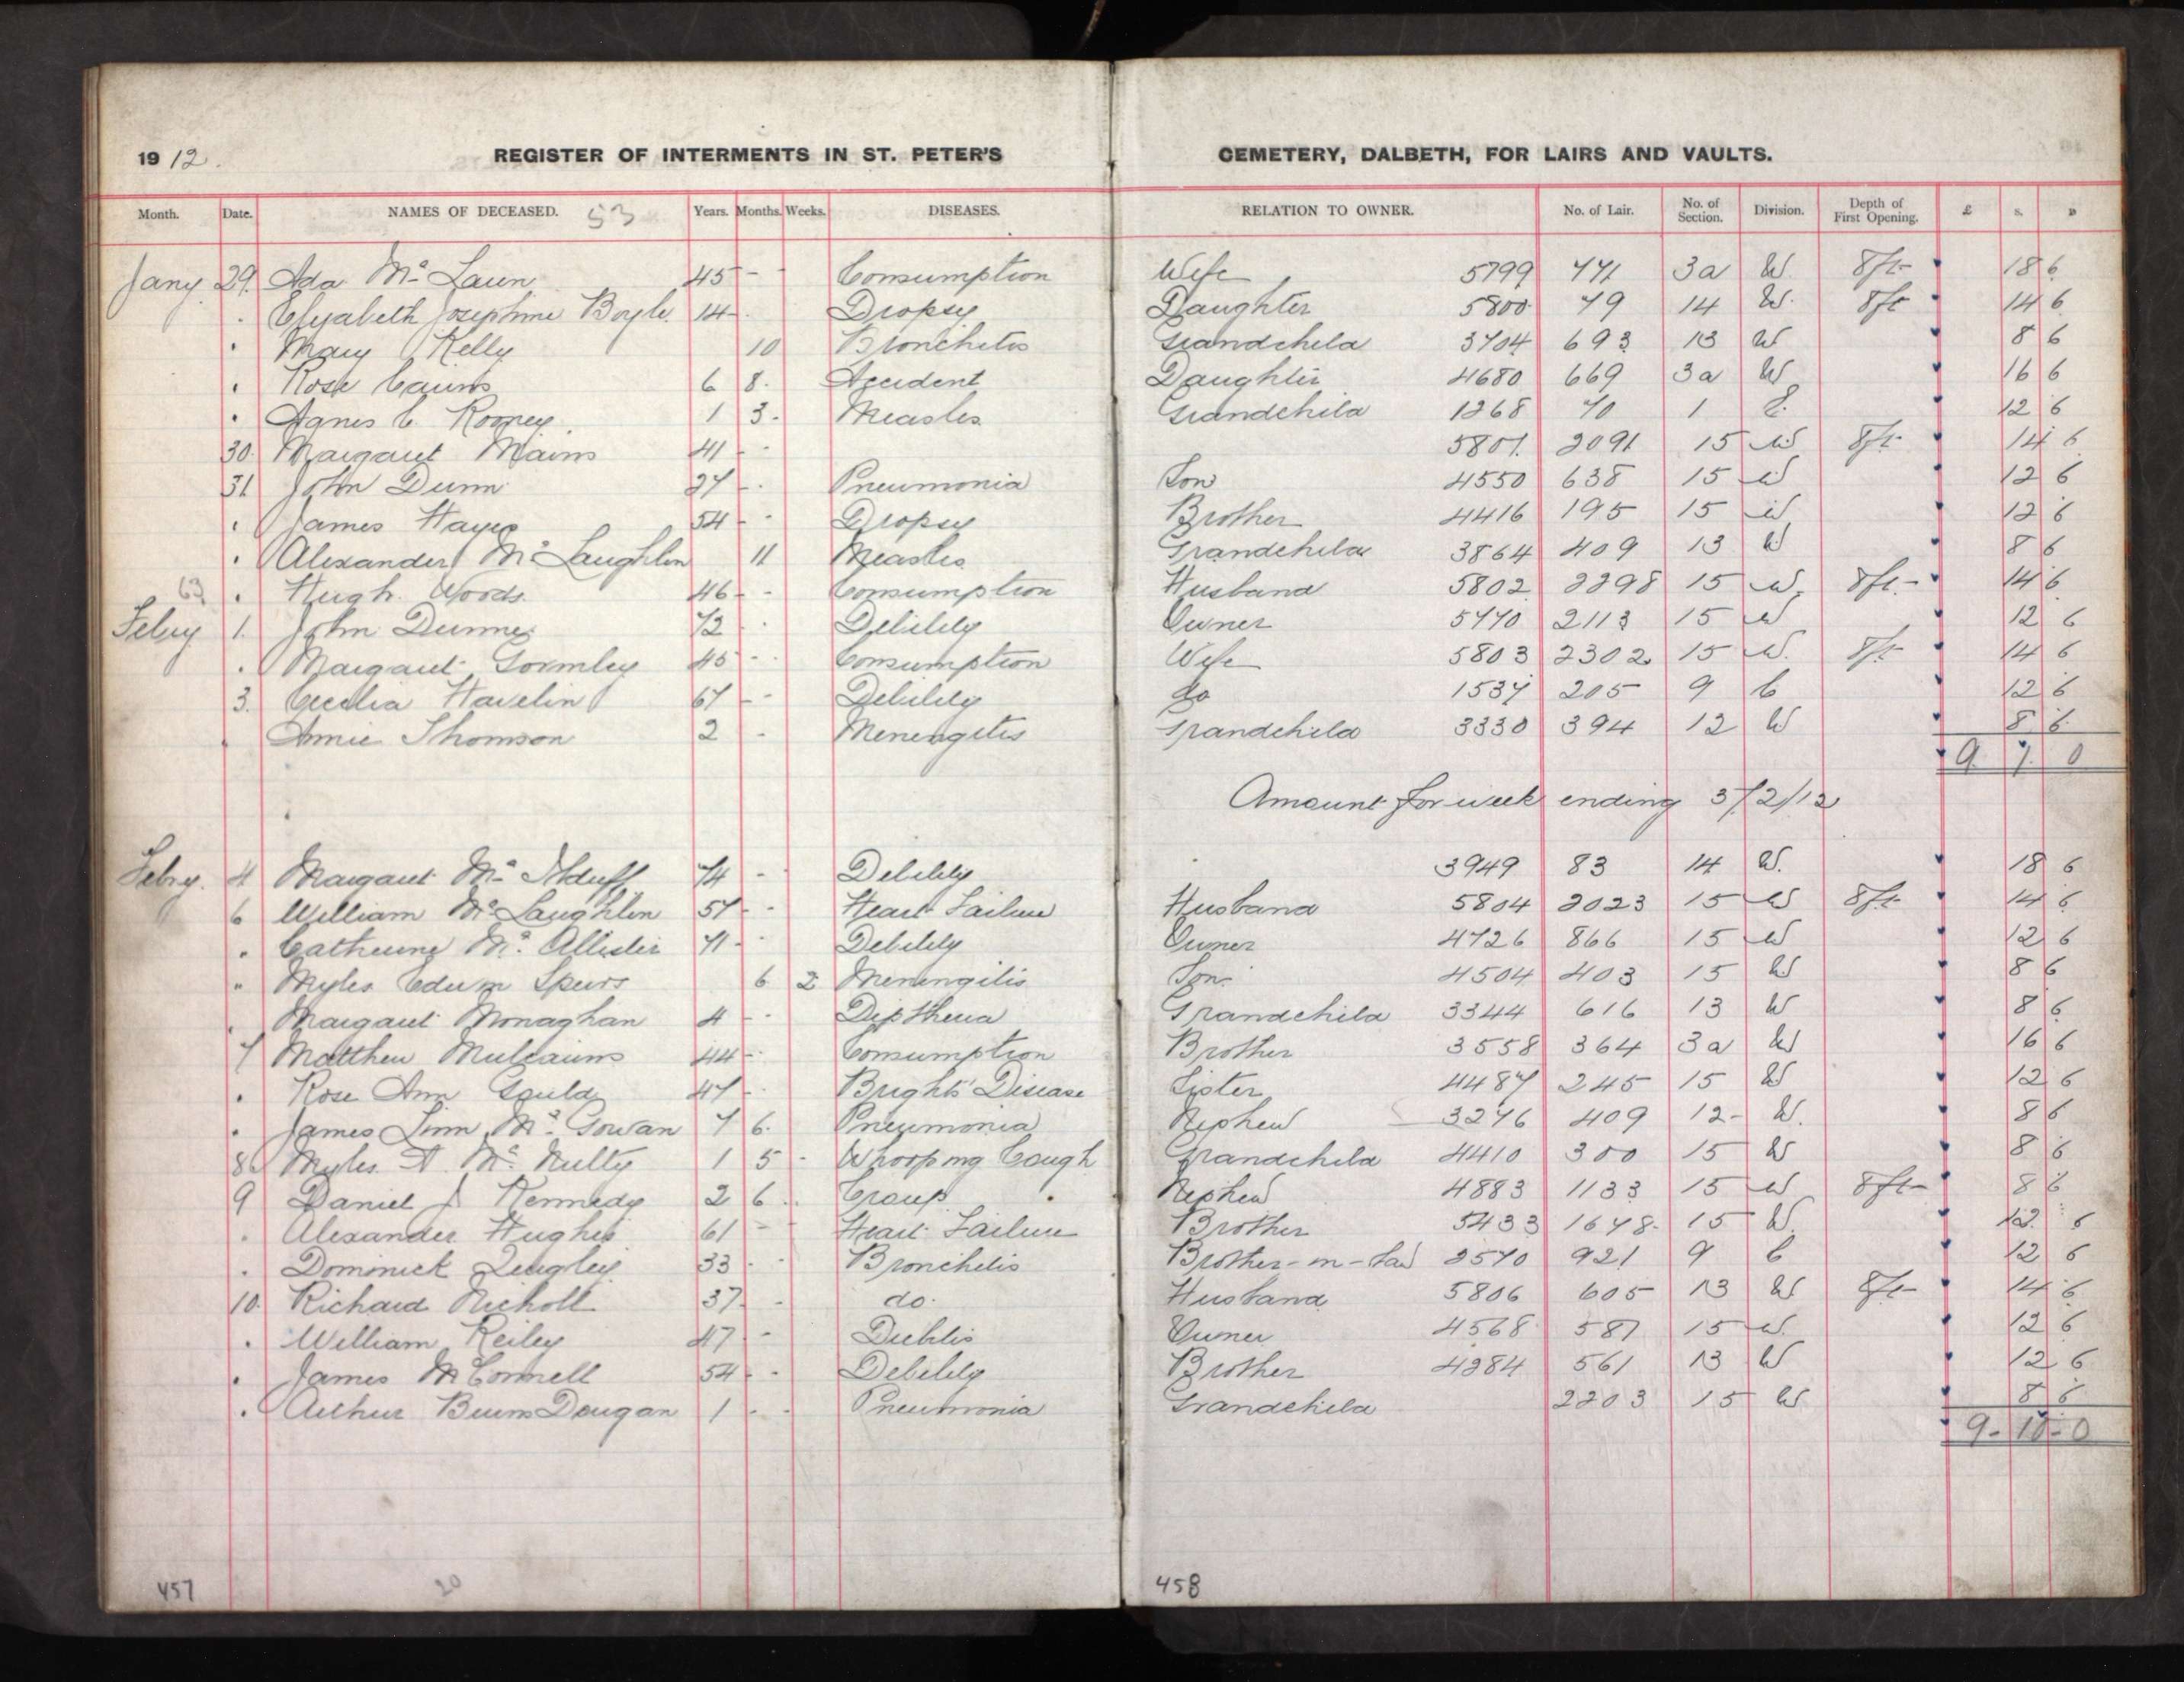 1912. REGISTER OF INTERMENTS IN ST. PETER'S CEMETERY, DALBETH, FOR LAIRS AND VAULTS.
Month. Date. NAMES OF DECEASED. 53 Years. Months. Weeks. DISEASES. RELATION TO OWNER. No. of Lair. No. of Section. Division. Depth of First Opening. £ s. D
Jany 29. Ada Mc 45 - - Consumption Wife 5799 771 3a W. 8ft 18 6
. Elizabeth Josephine Boyle 14 - Dropsy Daughter 5800 79 14 W. 8ft 14 6
. Mary Kelly 10 Bronchitis Grandchild 3704 693 13 W 8 6
. Rose Cairns 6 8. Accident Daughter 4680 669 3a W 16 6
. Agnes C Rooney 1 3. Measles Grandchild 1268 70 1 12 6
30. Margaret Mains 41 - 5801. 2091 15 W 8ft 14 6
31 John Dunn 27 - Pneumonia Son 4550 638 15 W 12 6
. James Hayes 54 - Dropsy Brother 4416 195 15 W 12 6
. Alexander McLaughlin 11 Measles Grandchild 3864 409 13 W 8 6
63 . Hugh Woods. 46 - - Consumption Husband 5802 2298 15 W. 8ft - 14 6
Febry 1. John Dunne 72 - Debility Owner 5770 2113 15 W 12 6
. Margaret Gormley 45 - - Consumption Wife 5803 2302 15 W. 8ft 14 6
3. Cecelia Havelin 67 - - Debility do 1537 205 9 C 12 6
. Annie Thomson 2 - Meningitis Grandchild 3330 394 12 W 8 6
9 7 0
Amount for week ending 3/2/12
Febry. 4 Margaret Mc 74 - Debility 3949 83 14 W. 18 6
6 William McLaughlin 57 - - Heart Failure Husband 5804 2023 15 W 8ft 14 6
. Catherine Mc. Allister 71 - Debility Owner 4726 866 15 W 12 6
" Myles Edwin Speirs 6 2 Meningitis Son 4504 403 15 W 8 6
. Margaret Monaghan 4 - - Diptheria Grandchild 3344 616 13 W 8 6
7 Matthew Mulcairns 44 - Consumption Brother 3558 364 3a W 16 6
. Rose Ann Gould 47 - Bright's Disease Sister 4487 245 15 W 12 6
. James Linn Mc. Gowan 7 6. Pneumonia Nephew 3276 409 12 - W. 8 6
8 Myles A. Mc. Nulty 1 5 - Whooping Cough Grandchild 4410 300 15 W 8 6
9 Daniel J Kennedy 2 6 Croup Nephew 4883 1133 15 W 8ft - 8 6
. Alexander Hughes 61 - Heart Failure Brother 5433 1648 - 15 W. 12 6
. Dominick Quigley 33 - - Bronchitis Brother-in-Law 2570 921 9 C 12 6
10. Richard Nicholl 37 - do. Husband 5806 605 13 W 8ft - 14 6
. William Reiley 47 - Owner 4568 587 15 W. 12 6
. James McConnell 54 - - Debility Brother 4284 561 13 W 12 6
. Arthur Dougan 1 - - Pneumonia Grandchild 2203 15 W 8 6
9 - 10 - 0
457 20 458